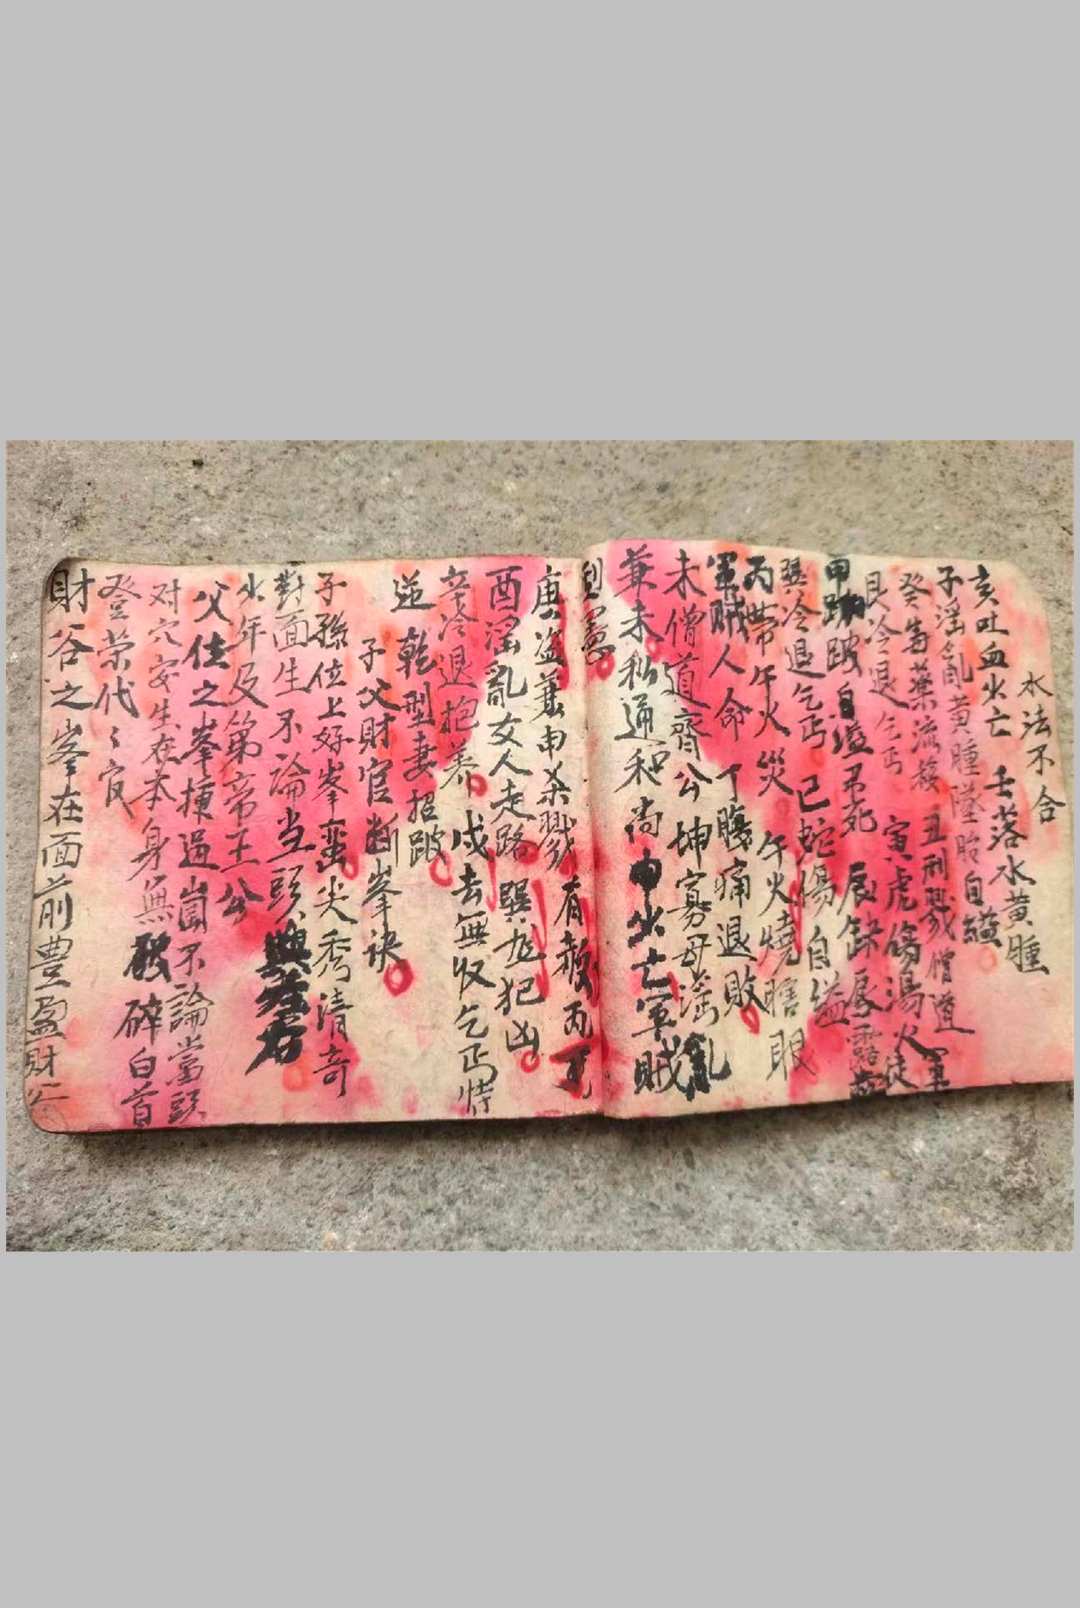 水法不合
亥吐血火亡 壬落水黄腫
子淫亂黄腫墜胎自縊
癸毒藥流族 丑刑戮僧道軍
艮冷退乞丐 寅虎傷湯火徒
甲跛自縊弔死 辰
巽冷退乞丐 巳蛇傷自縊
丙帶午火災 午火燒瞎眼
軍賊人命 丁腹痛退敗
未僧道齊公坤寡母淫亂
兼未私通和尚申火亡軍賊
型憲
庚盗兼申杀戮 有赦丙
酉淫亂女人走路 巽位犯凶
辛冷退抱养 戌去無収乞丐恃
逆 乾型妻招跛
子父財官断峯訣
子孫位上好峯巒尖秀清奇
對面生不論当頭與左右
火年及第帝王公
父位之峯揀逼崗不論當頭
对穴安生在本身無破碎白首
登荣代々官
財谷之峯在面前豊盈財